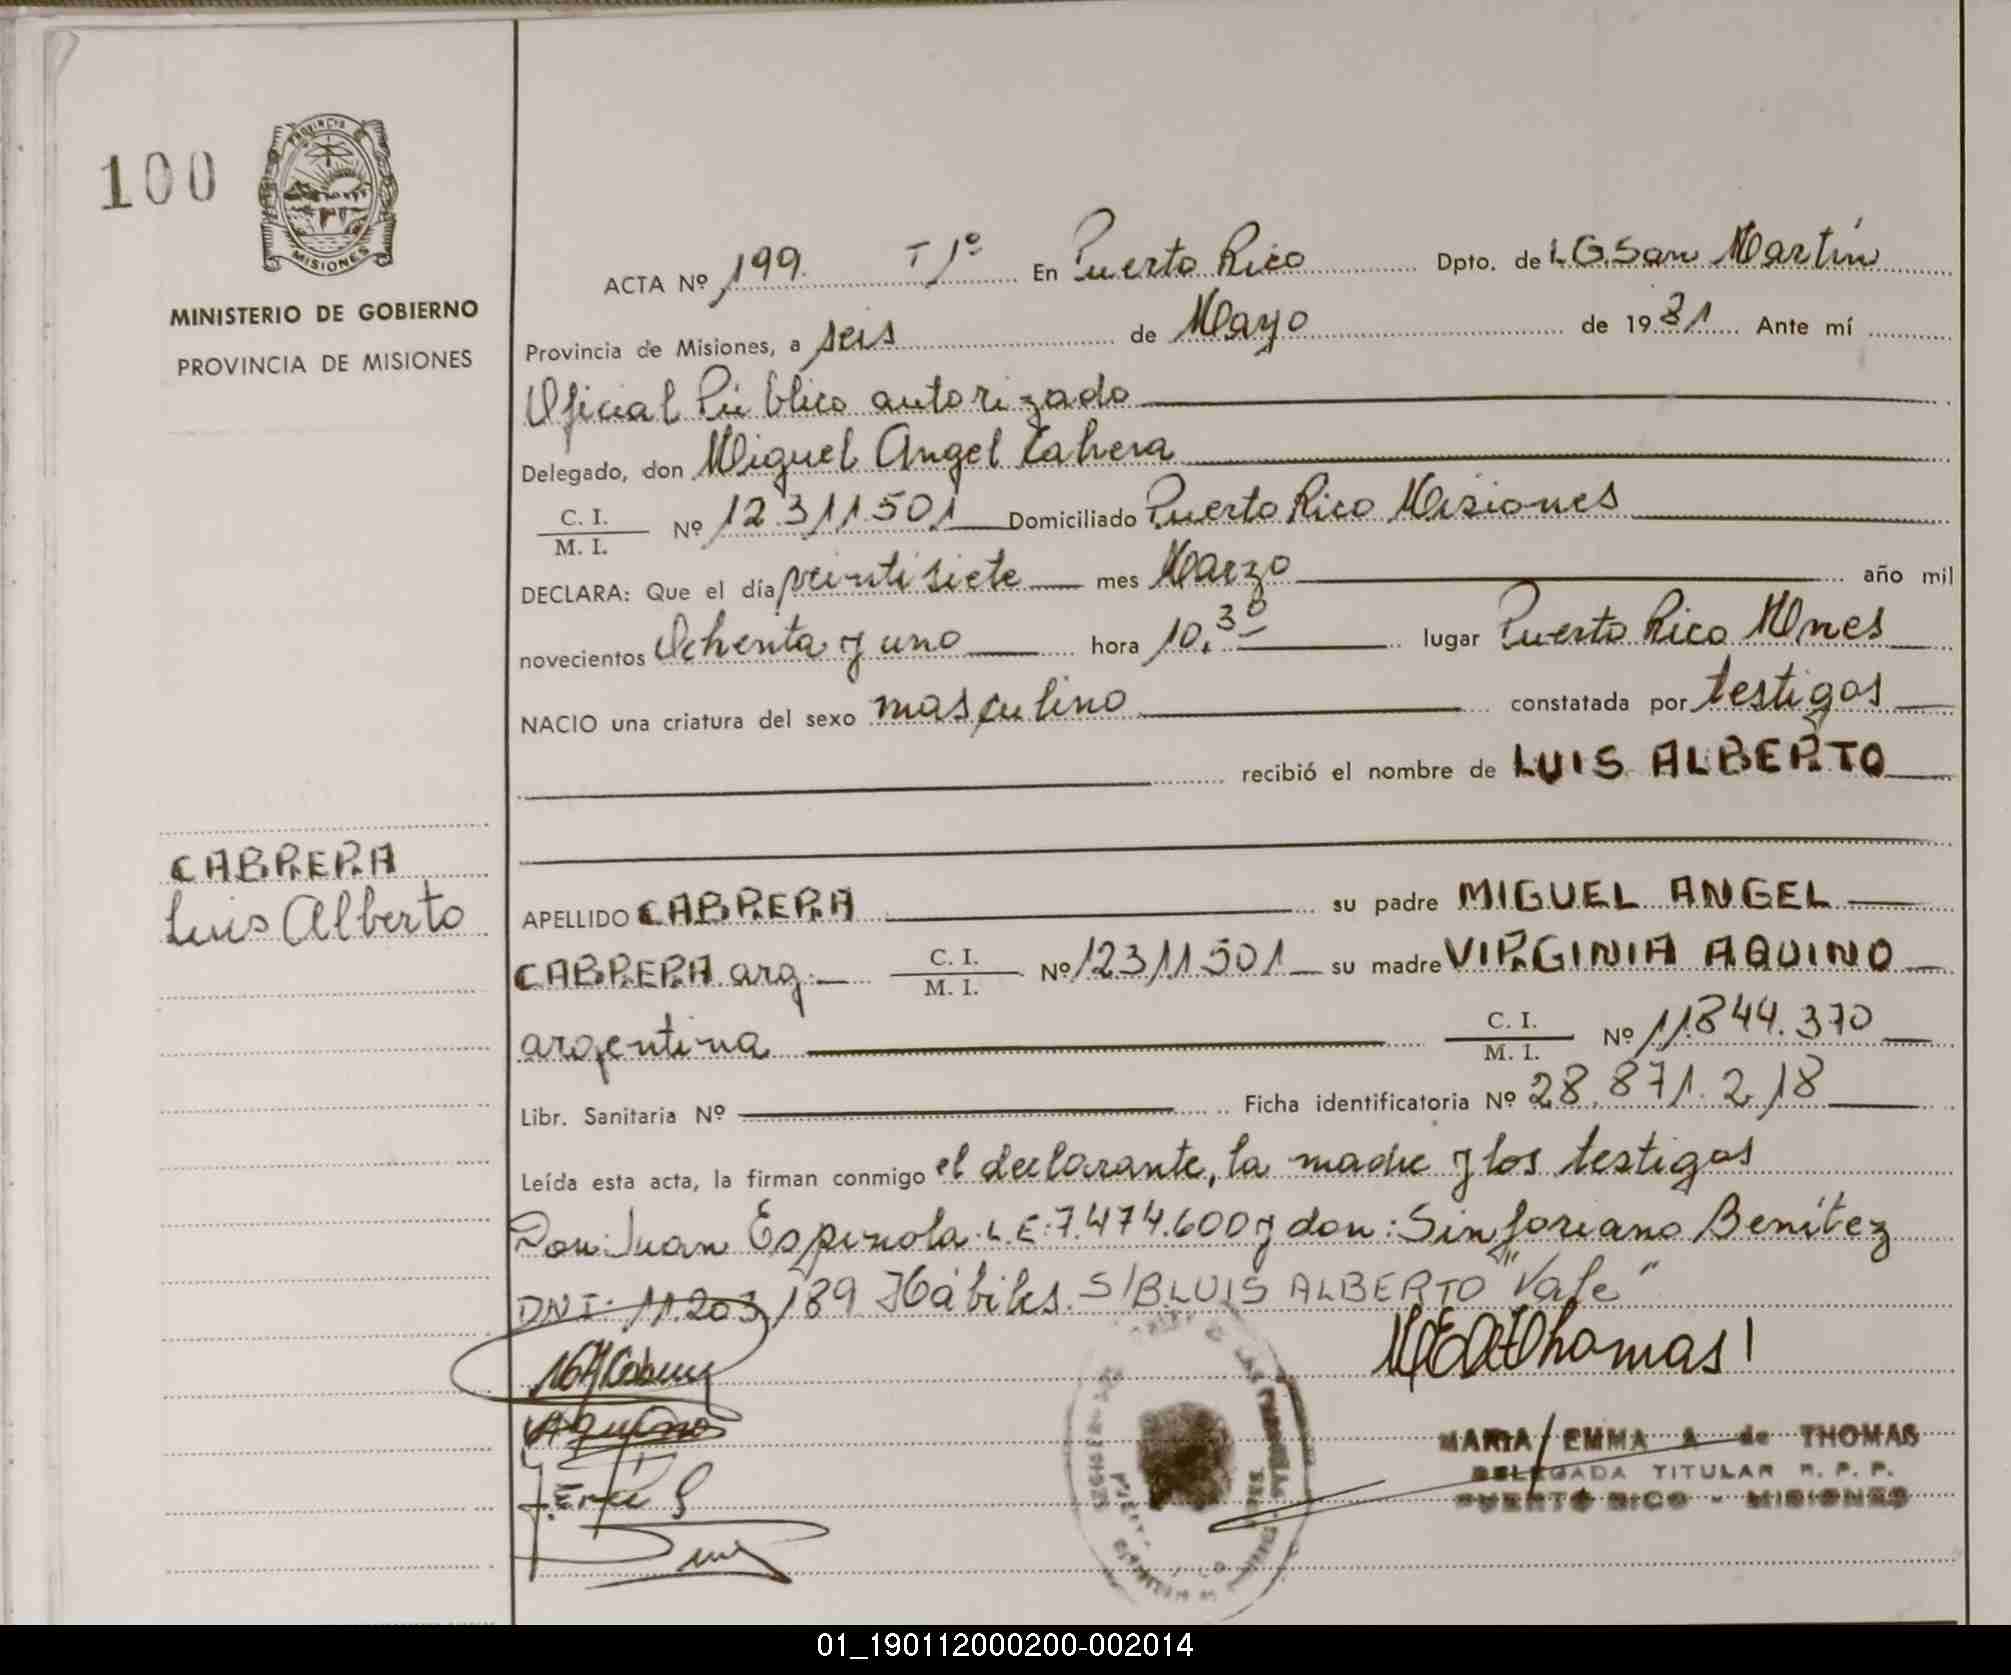 100
PROVINCIA DE
MISIONES
MINISTERIO DE GOBIERNO
PROVINCIA DE MISIONES
ACTA Nº 199. T 1º En Puerto Rico Dpto. de L.G.San Martín
Provincia de Misiones, a seis de Mayo de 1981 Ante mí
Oficial Público autorizado
Delegado, don Miguel Angel Cabrera
C. I. / M. I. Nº 12311501 Domiciliado Puerto Rico Misiones
DECLARA: Que el día veintisiete mes Marzo año mil
novecientos Ochenta y uno hora 10,30 lugar Puerto Rico Mnes
NACIO una criatura del sexo masculino constatada por testigos
recibió el nombre de LUIS ALBERTO
CABRERA
Luis Alberto
APELLIDO CABRERA su padre MIGUEL ANGEL
CABRERA arg. C. I. / M. I. Nº 12311501 su madre VIRGINIA AQUINO
argentina C. I. / M. I. Nº 11844.370
Libr. Sanitaria Nº Ficha identificatoria Nº 28.871.218
Leída esta acta, la firman conmigo el declarante, la madre y los testigos
Don: Juan Espinola L.E:7.474.600 y don: Sinforiano Benítez
DNI: 11.203,189 Hábiles. S/B LUIS ALBERTO "Vale"
MEAThomas
Aquino
MARIA EMMA A de THOMAS
DELEGADA TITULAR R. P. P.
PUERTO RICO - MISIONES
01_190112000200-002014